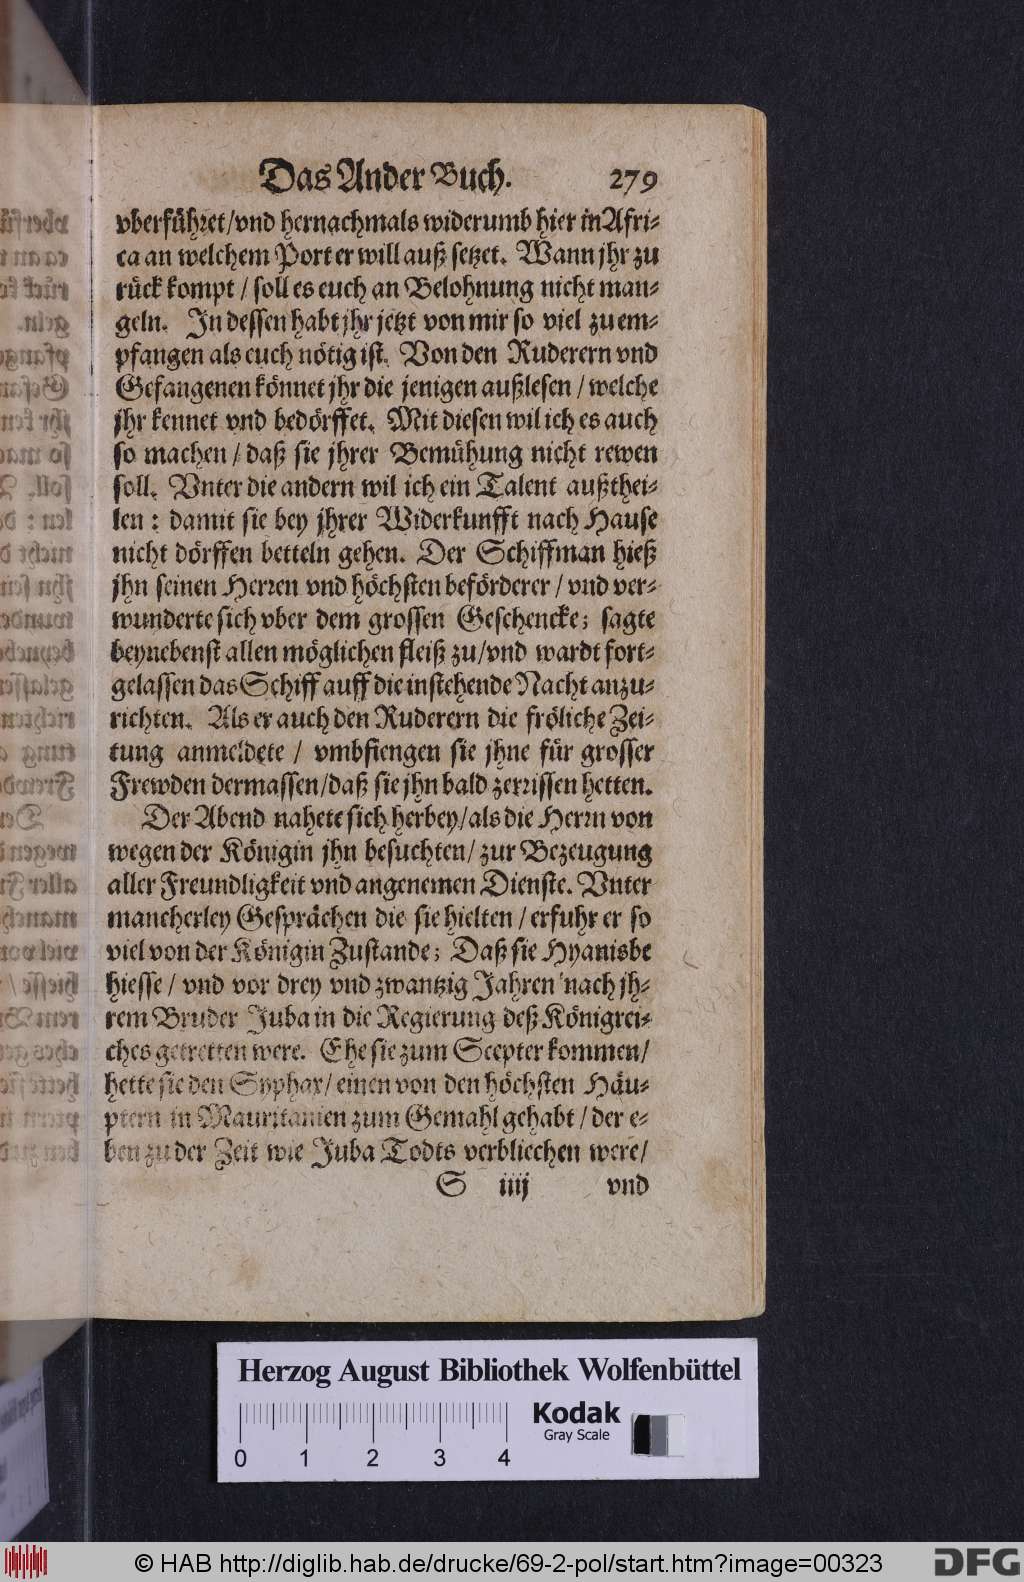 Das Ander Buch. 279
vberfühzet/vnd hernachmals widerumb hier in Afri-
ca an welchem Port er will auß setzet. Wann jhr zu
rück kompt / soll es euch an Belohnung nicht man-
geln. In dessen habt jhr jetzt von mir so viel zu em-
pfangen als euch nötig ist. Von den Ruderern vnd
Gefangenen könnet jhr die jenigen außlesen / welche
jhr kennet vnd bedörffet. Mit diesen wil ich es auch
so machen / daß sie jhrer Bemühung nicht rewen
soll. Vnter die andern wil ich ein Talent außthei-
len : damit sie bey jhrer Widerkunfft nach Hause
nicht dörffen betteln gehen. Der Schiffman hieß
jhn seinen Herren vnd höchsten beförderer / vnd ver-
wunderte sich vber dem grossen Geschencke; sagte
beynebenst allen möglichen fleiß zu/vnd wardt fort-
gelassen das Schiff auff die instehende Nacht anzu-
richten. Als er auch den Ruderern die fröliche Zei-
tung anmeldete / vmbfiengen sie jhne für grosser
Frewden dermassen/daß sie jhn bald zerrissen hetten.
Der Abend nahete sich herbey/als die Herrn von
wegen der Königin jhn besuchten/ zur Bezeugung
aller Freundligkeit vnd angenemen Dienste. Vnter
mancherley Gesprächen die sie hielten / erfuhr er so
viel von der Königin Zustande; Daß sie Hyanisbe
hiesse / vnd vor drey vnd zwantzig Jahren nach jh-
rem Bruder Juba in die Regierung deß Königrei-
ches getretten were. Ehe sie zum Scepter kommen/
hette sie den Syphax/ einen von den höchsten Häu-
ptern in Mauritanien zum Gemahl gehabt / der e-
ben zu der Zeit wie Juba Todts verbliechen were/
S iiij vnd
Herzog August Bibliothek Wolfenbüttel
Kodak
Gray Scale
0 1 2 3 4
© HAB http://diglib.hab.de/drucke/69-2-pol/start.htm?image=00323
DFG